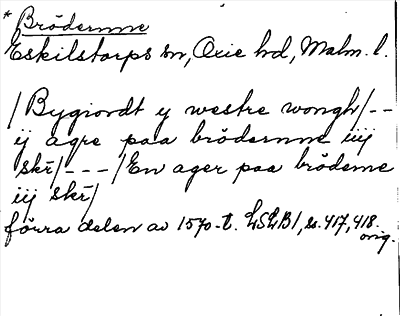 * Brödernne
Eskilstorps sn, Oxie hd, Malm. l.
/Bygiordt y westre wongh/--
ij agre paa brödernne iiij
skr̄/---/En ager paa bröderne
iij skr̄/
förra delen av 1570-t. LSLB1, s. 417, 418.
orig.